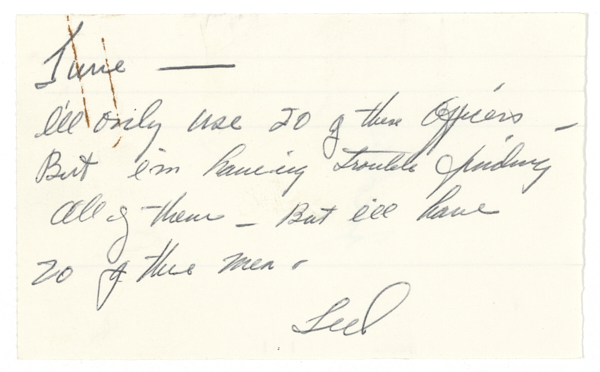 June —
I'll only use 20 of these Officers —
But i'm having trouble finding
all of them — But i'll have
20 of these men.